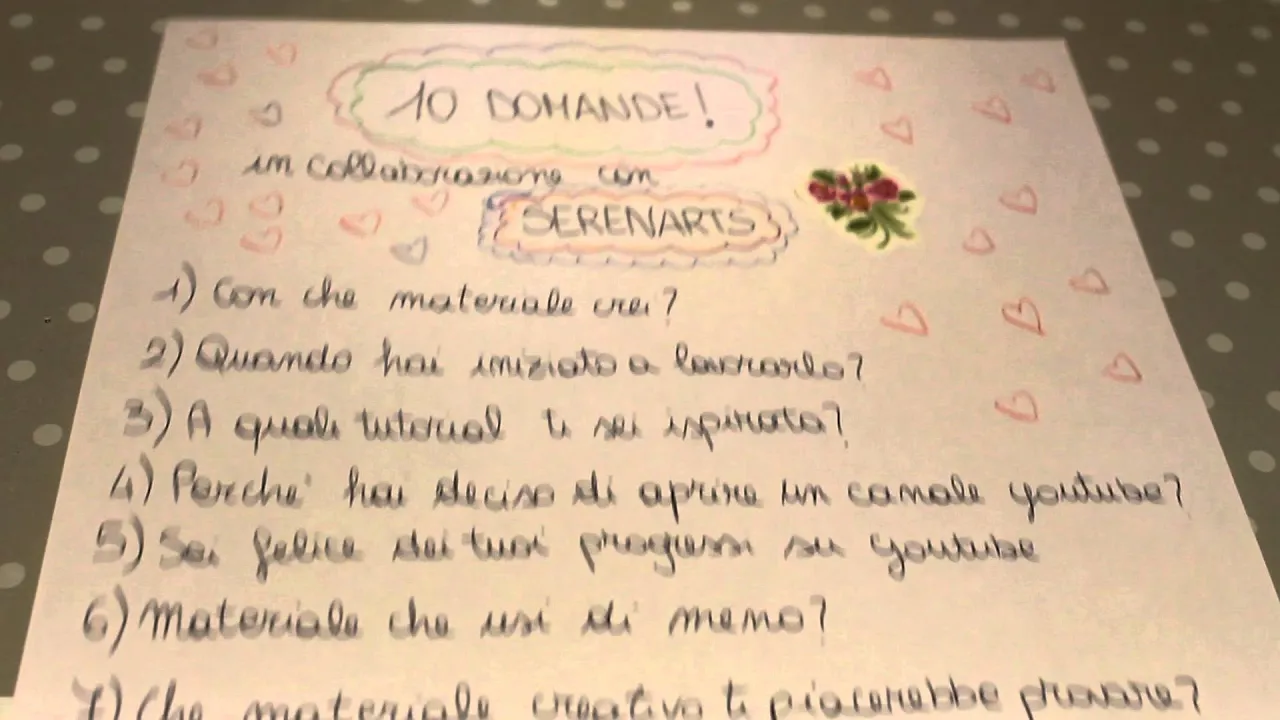 10 DOMANDE!
in collaborazione con
SERENARTS
1) Con che materiale crei?
2) Quando hai iniziato a lavorarlo?
3) A quale tutorial ti sei ispirata?
4) Perche' hai deciso di aprire un canale youtube?
5) Sei felice dei tuoi progressi su youtube
6) Materiale che usi di meno?
7) Che materiale creativo ti piacerebbe provare?